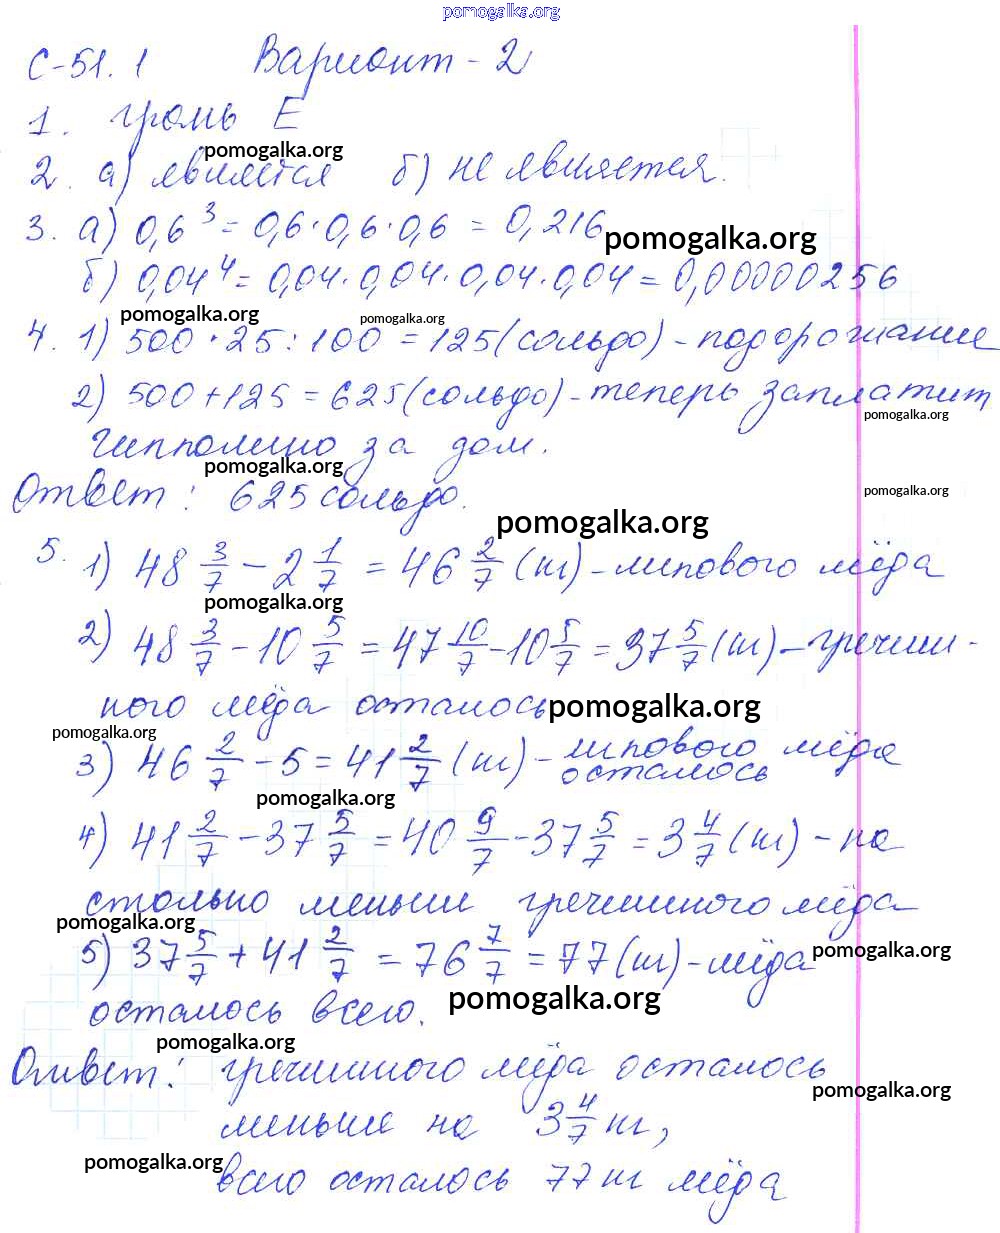 pomogalka.org
С-51.1 Вариант - 2
1. грань Е
pomogalka.org
2. а) является б) не является.
3. а) 0,6³ = 0,6·0,6·0,6 = 0,216
pomogalka.org
б) 0,04⁴ = 0,04·0,04·0,04·0,04 = 0,00000256
pomogalka.org pomogalka.org
4. 1) 500·25:100 = 125(сольдо) - подорожание
2) 500+125 = 625(сольдо) - теперь заплатит
pomogalka.org
Чипполино за дом.
pomogalka.org
Ответ: 625 сольдо.
pomogalka.org
pomogalka.org
5. 1) 48 3/7 - 2 1/7 = 46 2/7 (кг) - липового мёда
pomogalka.org
2) 48 3/7 - 10 5/7 = 47 10/7 - 10 5/7 = 37 5/7 (кг) - гречиш-
ного мёда осталось
pomogalka.org
pomogalka.org
3) 46 2/7 - 5 = 41 2/7 (кг) - липового мёда
осталось
pomogalka.org
4) 41 2/7 - 37 5/7 = 40 9/7 - 37 5/7 = 3 4/7 (кг) - на
столько меньше гречишного мёда
pomogalka.org
5) 37 5/7 + 41 2/7 = 76 7/7 = 77 (кг) - мёда
pomogalka.org
осталось всего.
pomogalka.org
pomogalka.org
Ответ: гречишного мёда осталось
pomogalka.org
меньше на 3 4/7 кг,
pomogalka.org
всего осталось 77 кг мёда